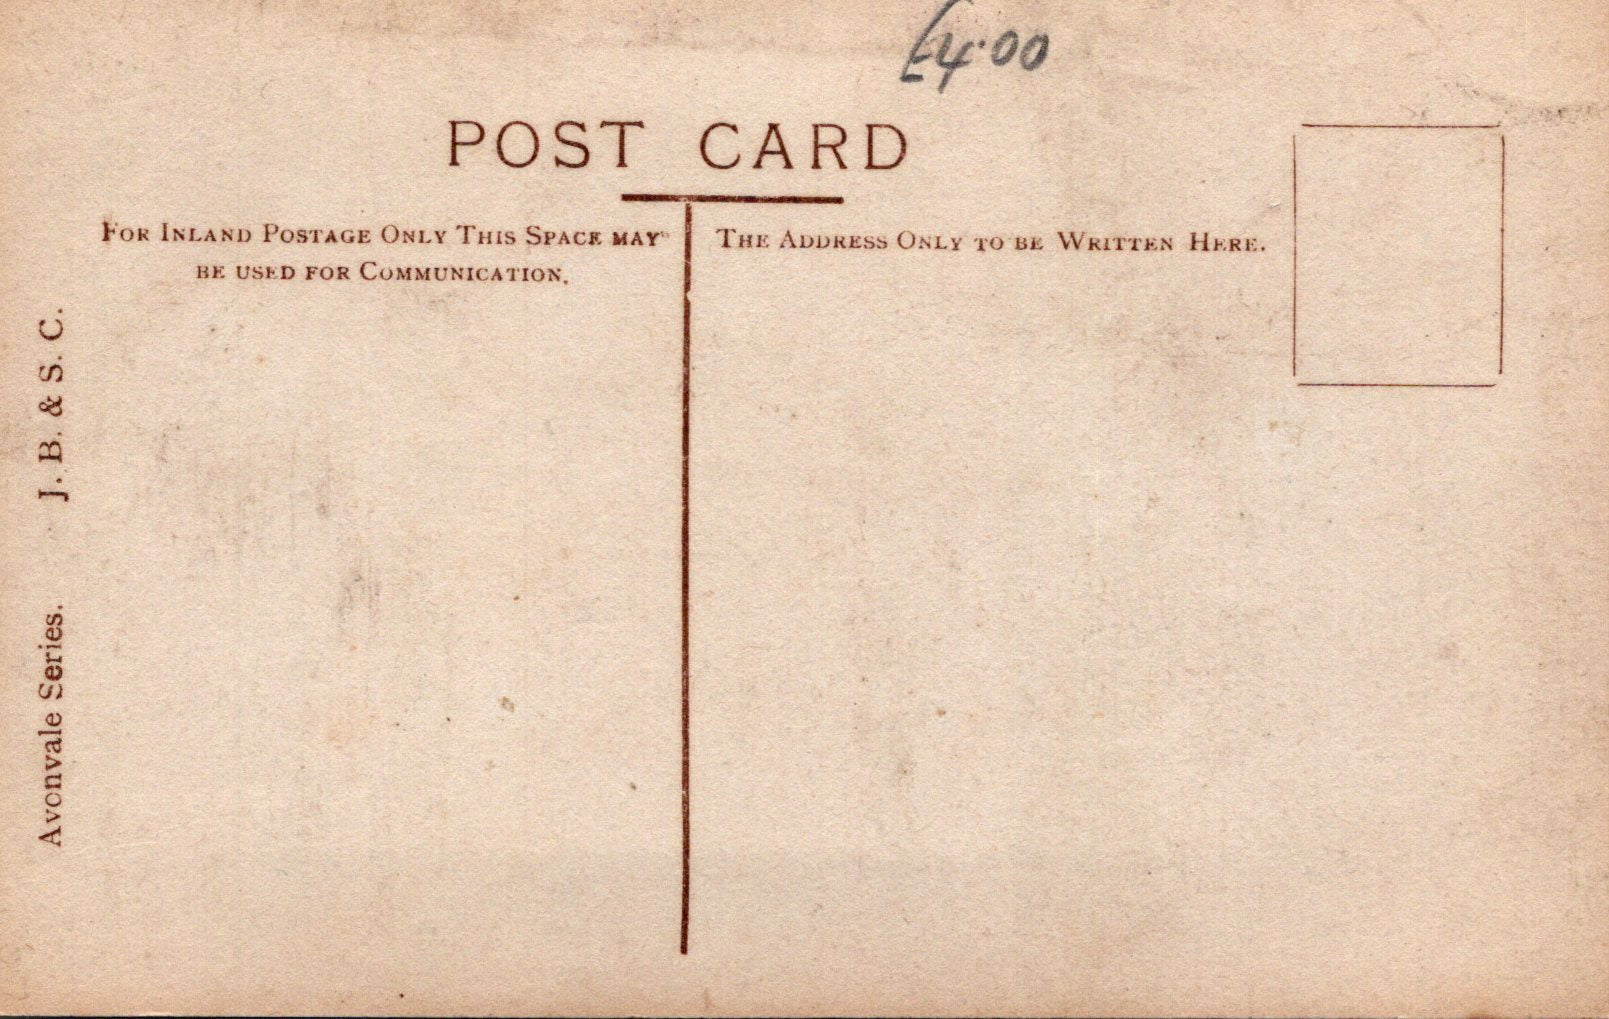 £4.00
POST CARD
FOR INLAND POSTAGE ONLY THIS SPACE MAY
BE USED FOR COMMUNICATION.
THE ADDRESS ONLY TO BE WRITTEN HERE.
Avonvale Series. J. B. & S. C.